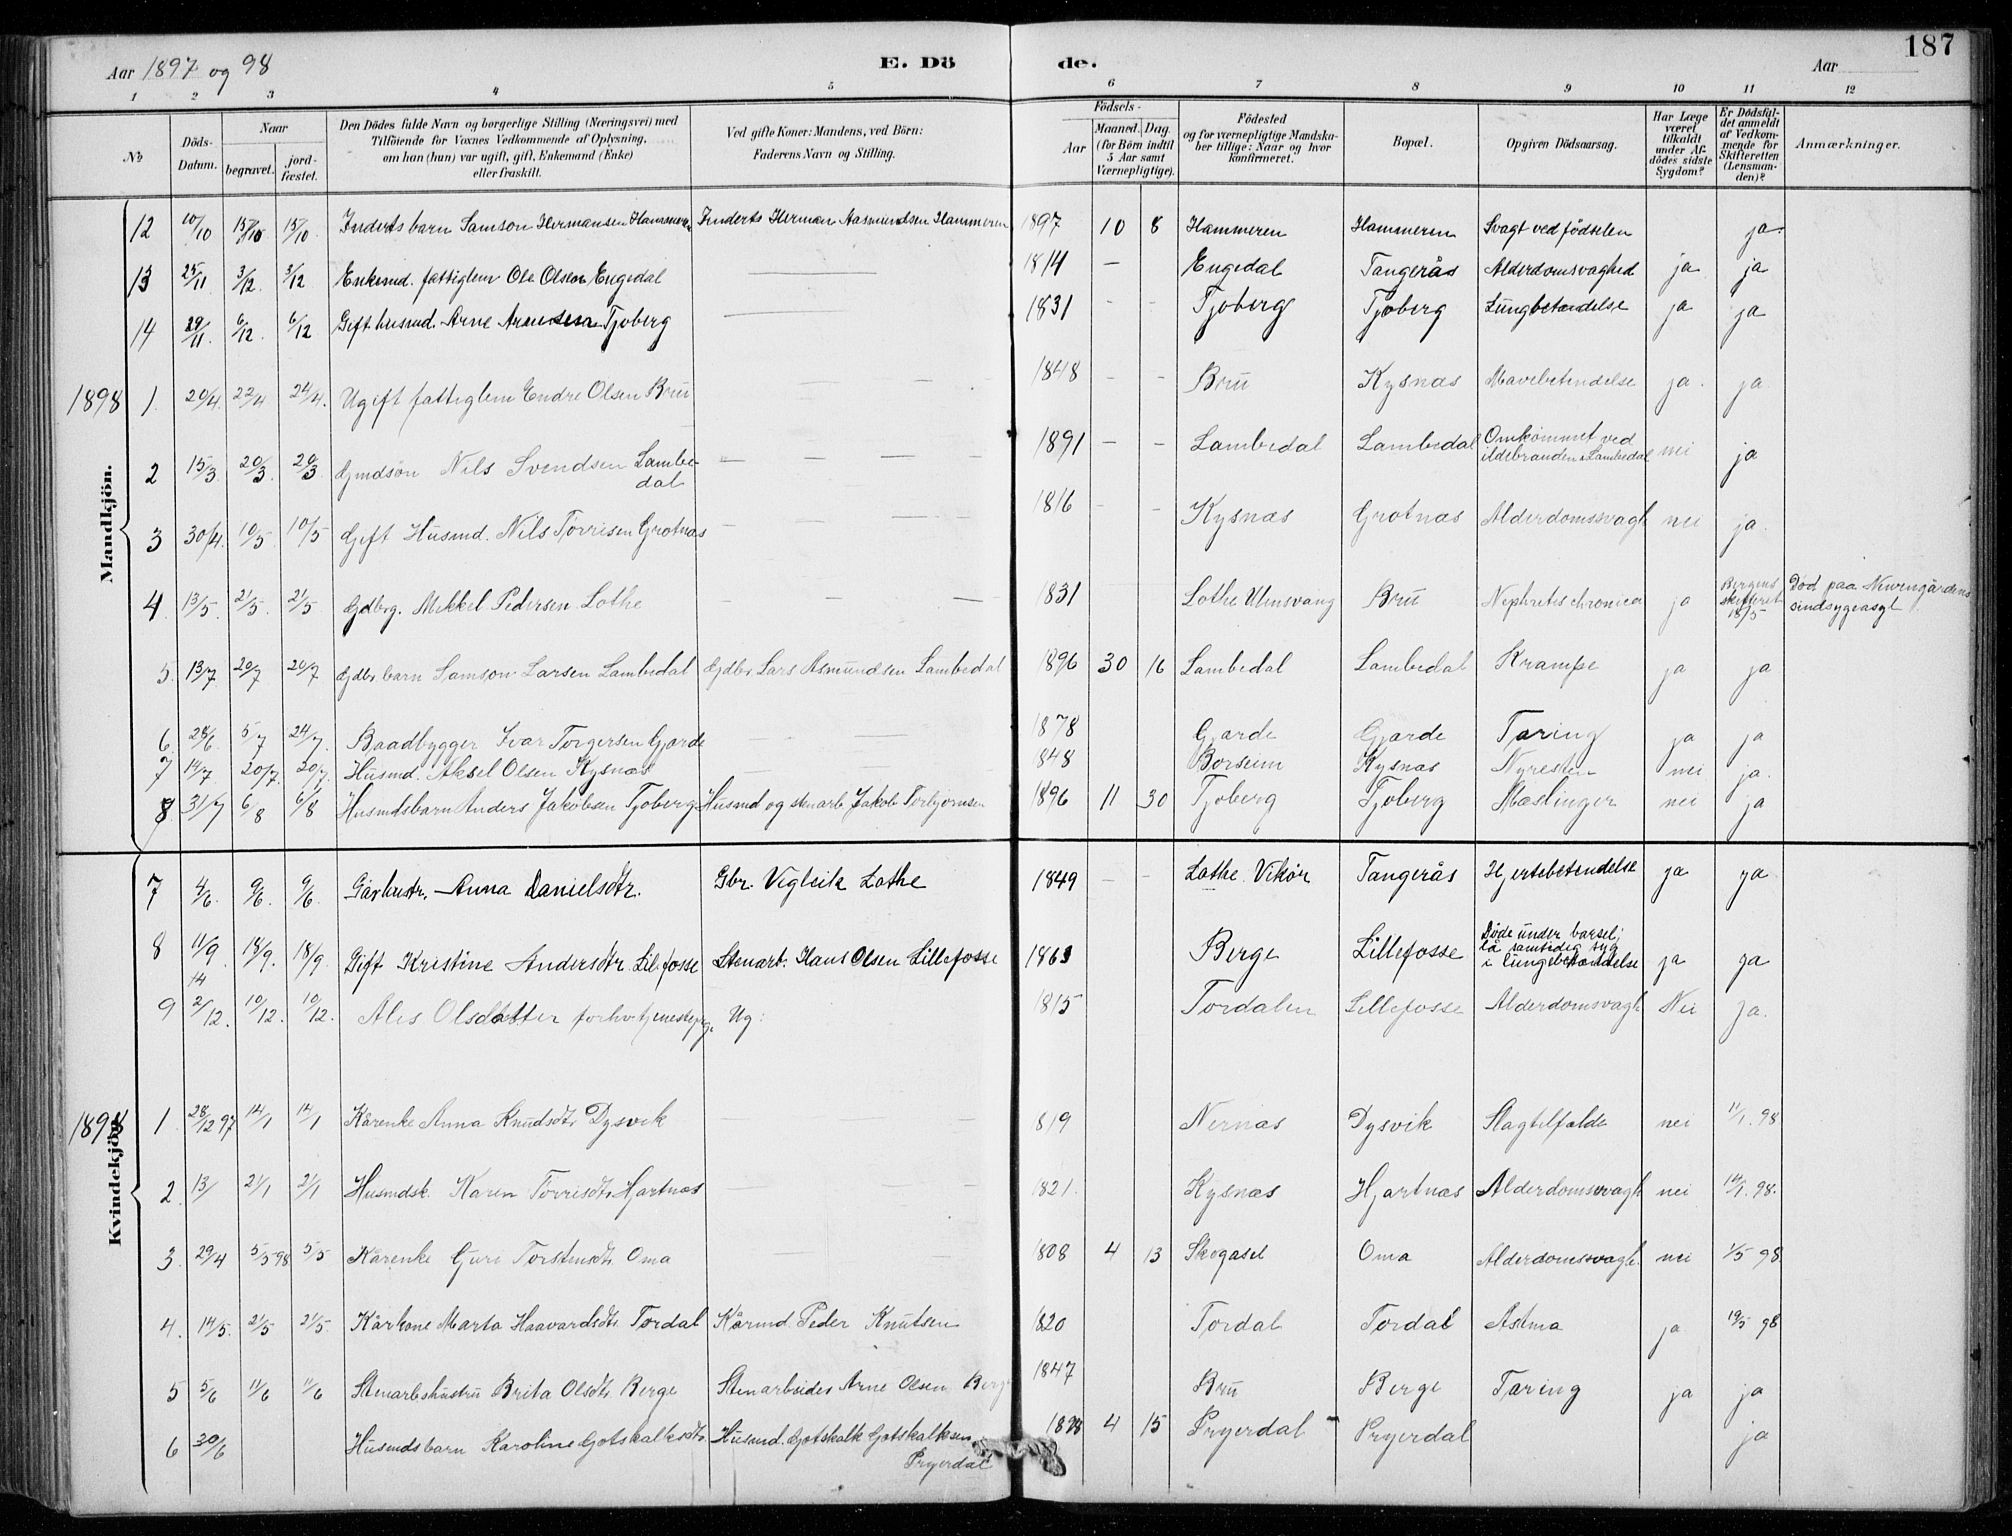 187
Aar 1897 og 98 E. Dö de. Aar
1 2 3 4 5 6 7 8 9 10 11 12
No
Döds-Datum.
Naar
begravet.
jord-fæstet.
Den Dödes fulde Navn og borgerlige Stilling (Næringsvei) med
Tilföiende for Voxnes Vedkommende af Oplysning,
om han (hun) var ugift, gift, Enkemand (Enke)
eller fraskilt.
Ved gifte Koner: Mandens, ved Börn:
Faderens Navn og Stilling.
Födsels-
Aar
Maaned. Dag.
(for Börn indtil
5 Aar samt
Værnepligtige).
Födested
og for værnepligtige Mandska-
ber tillige: Naar og hvor
konfirmeret.
Bopæl.
Opgiven Dödsaarsag.
Har Læge
været
tilkaldt
under Af-
dödes sidste
Sygdom?
Er Dödsfal-
det anmeldt
af Vedkom-
mende for
Skifteretten
(Lensman-
den)?
Anmærkninger.
Mandkjön.
12 10/10 15/10 15/10 Inderts barn Samson Hermansen Hammeren Inderts Herman Aasmundsen Hammeren 1897 10 8 Hammeren Hammeren Svagt ved födselen ja
13 25/11 3/12 3/12 Enkemd. fattiglem Ole Olsen Engedal 1814 Engedal Tangerås Alderdomsvaghed ja ja
14 29/11 6/12 6/12 Gift husmd. Arne Arnesen Tjoberg 1831 Tjoberg Tjoberg Lungbetændelse ja ja
1898 1 20/4 22/4 24/4 Ugift fattiglem Endre Olsen Brŭ 1848 Brŭ Kysnæs Mavebetendelse ja ja
2 15/3 20/3 20/3 Gmdsön Nils Svendsen Lambe-
dal 1891 Lambedal Lambedal Omkommet ved
ildebranden i Lambedal nei ja
3 30/4 10/5 10/5 Gift Husmd. Nils Tørrisen Grotnæs 1816 Kysnæs Grotnæs Alderdomssvagh nei ja
4 13/5 21/5 21/5 Gdbrg. Mikkel Pedersen Lothe 1831 Lothe Ulnsvang Brŭ Nephretis chronica ja Bergens
skifteret
18/5 Död paa Neumgårdens
sindsygeasyl
5 13/7 20/7 20/7 Gdbr barn Samson Larsen Lambedal Gdbr Lars Asmundsen Lambedal 1896 30 16 Lambedal Lambedal Krampe ja ja
6 28/6 5/7 24/7 Baadbygger Ivar Torgersen Gjærde 1878 Gjærde Gjærde Tæring ja ja
7 14/7 20/7 20/7 Husmd. Aksel Olsen Kysnæs 1848 Borseim Kysnæs Nyresten nei ja
8 31/7 6/8 6/8 Husmdsbarn Anders Jakobsen Tjoberg Husmd og stenarb Jakob Torbjornsen 1896 11 30 Tjoberg Tjoberg Mæslinger nei ja
Kvindekjön.
7 4/6 9/6 9/6 Gårhustr. Anna Danielsdtr. Gbr. Vigleik Lothe 1849 Lothe Vikør Tangerås Hjertebetendelse ja ja
8 11/9 18/9 18/9 Gift Kristine Andersdtr. Lillefosse Stenarb. Hans Olsen Lillefosse 1863 Berge Lillefosse Døde under barsel;
lå samtidig syg
i lungebetændelse ja ja
9 2/12 10/12 10/12 Alis Olsdatter Ug: 1815 Tordalen Lillefosse Alderdomsvagh Nei Ja.
1898 1 28/12 97 14/1 14/1 Kårenke Anna Knudsdtr Dysvik 819 Nernæs Dysvik Slagtilfælde nei 11/1 98
2 13/ 21/1 21/1 Husmdsk. Karen Torrisdtr Hjartnæs 1821 Kysnæs Hjartnæs Alderdomsvagh nei 98.
3 29/4 5/5 98 5/5 Kårenke Guri Torstensdtr Oma 1808 4 13 Skogasel Oma Alderdomssvagh nei 1/5 98
4. 14/5. 21/5 21/5. Kårkone Marta Haavardsdtr Tordal Kårmd Peder Knutsen 1820 Tordal Tordal Astma ja 19/5 98
5 5/6 11/6 11/6 Stenarbshustru Brita Olsdtr Berge Stenarbeider Arne Olsen Berge 1847 Brŭ Berge Tæring ja ja
6 30/6 Husmdsbarn Karoline Gotskalksdtr. Husmd. Gotskalk Gotskalksen
Pryerdal 1898 4 15 Pryerdal Pryerdal ja